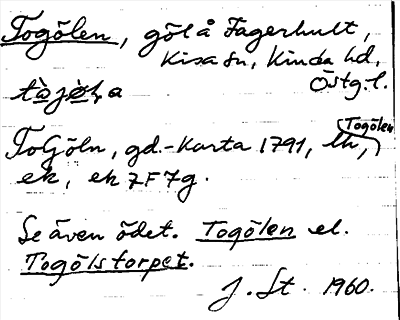 Togölen, göl å Fagerhult,
Kisa sn, Kinda hd,
Östg.l.
ToGöln, gd.-karta 1791, lk, (Togölen)
ek, ek 7F7g.
Se även ödet. Togölen el.
Togölstorpet.
J. St. 1960.